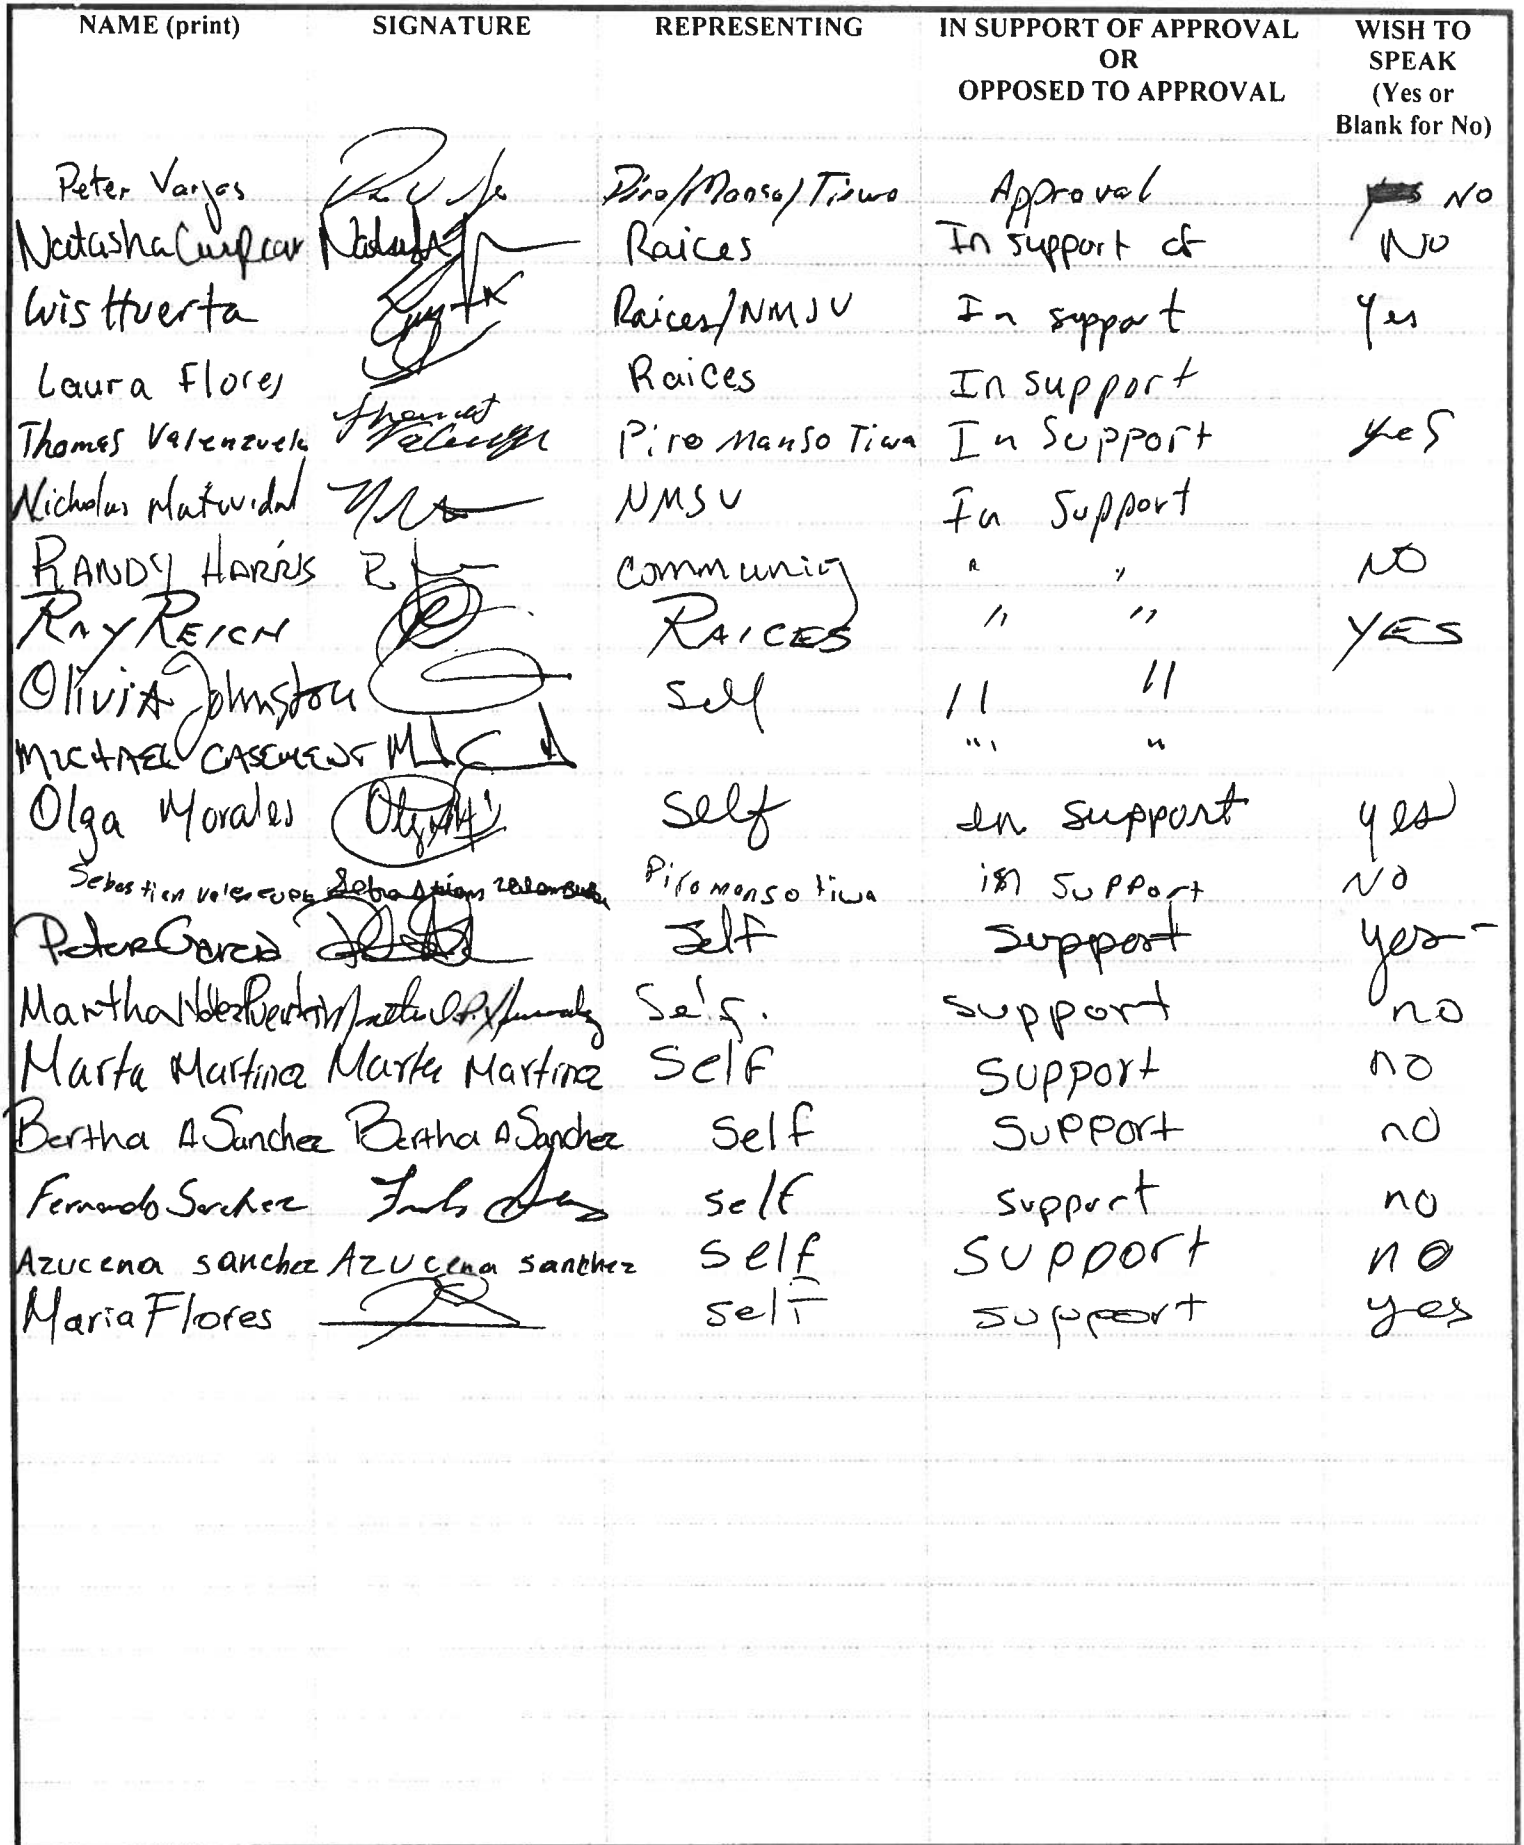 NAME (print) SIGNATURE REPRESENTING IN SUPPORT OF APPROVAL WISH TO
OR SPEAK
OPPOSED TO APPROVAL (Yes or
Blank for No)
Peter Vargas Piro/Manso/Tiwa Approval yes NO
Natasha Raices In support of NO
Luis Huerta Raices/NMSU In support Yes
Laura Flores Raices In support
Thomas Valenzuela Thomas Valenzuela Piro Manso Tiwa In Support yes
Nicholas NMSU In Support
RANDY HARRIS community " " NO
RAY REICH RAICES " " YES
Olivia Johnston Self " "
MICHAEL CASEMENT " "
Olga Morales Self In support yes
Sebastian Valenzuela Sebastian Valenzuela Piro manso tiwa in support NO
Peter Garcia Self support yes
Martha Self. support no
Marta Martinez Marta Martinez Self support no
Bertha A Sanchez Bertha A Sanchez Self Support no
Fernando Sanchez self support no
Azucena sanchez Azucena sanchez Self Support no
Maria Flores self support yes